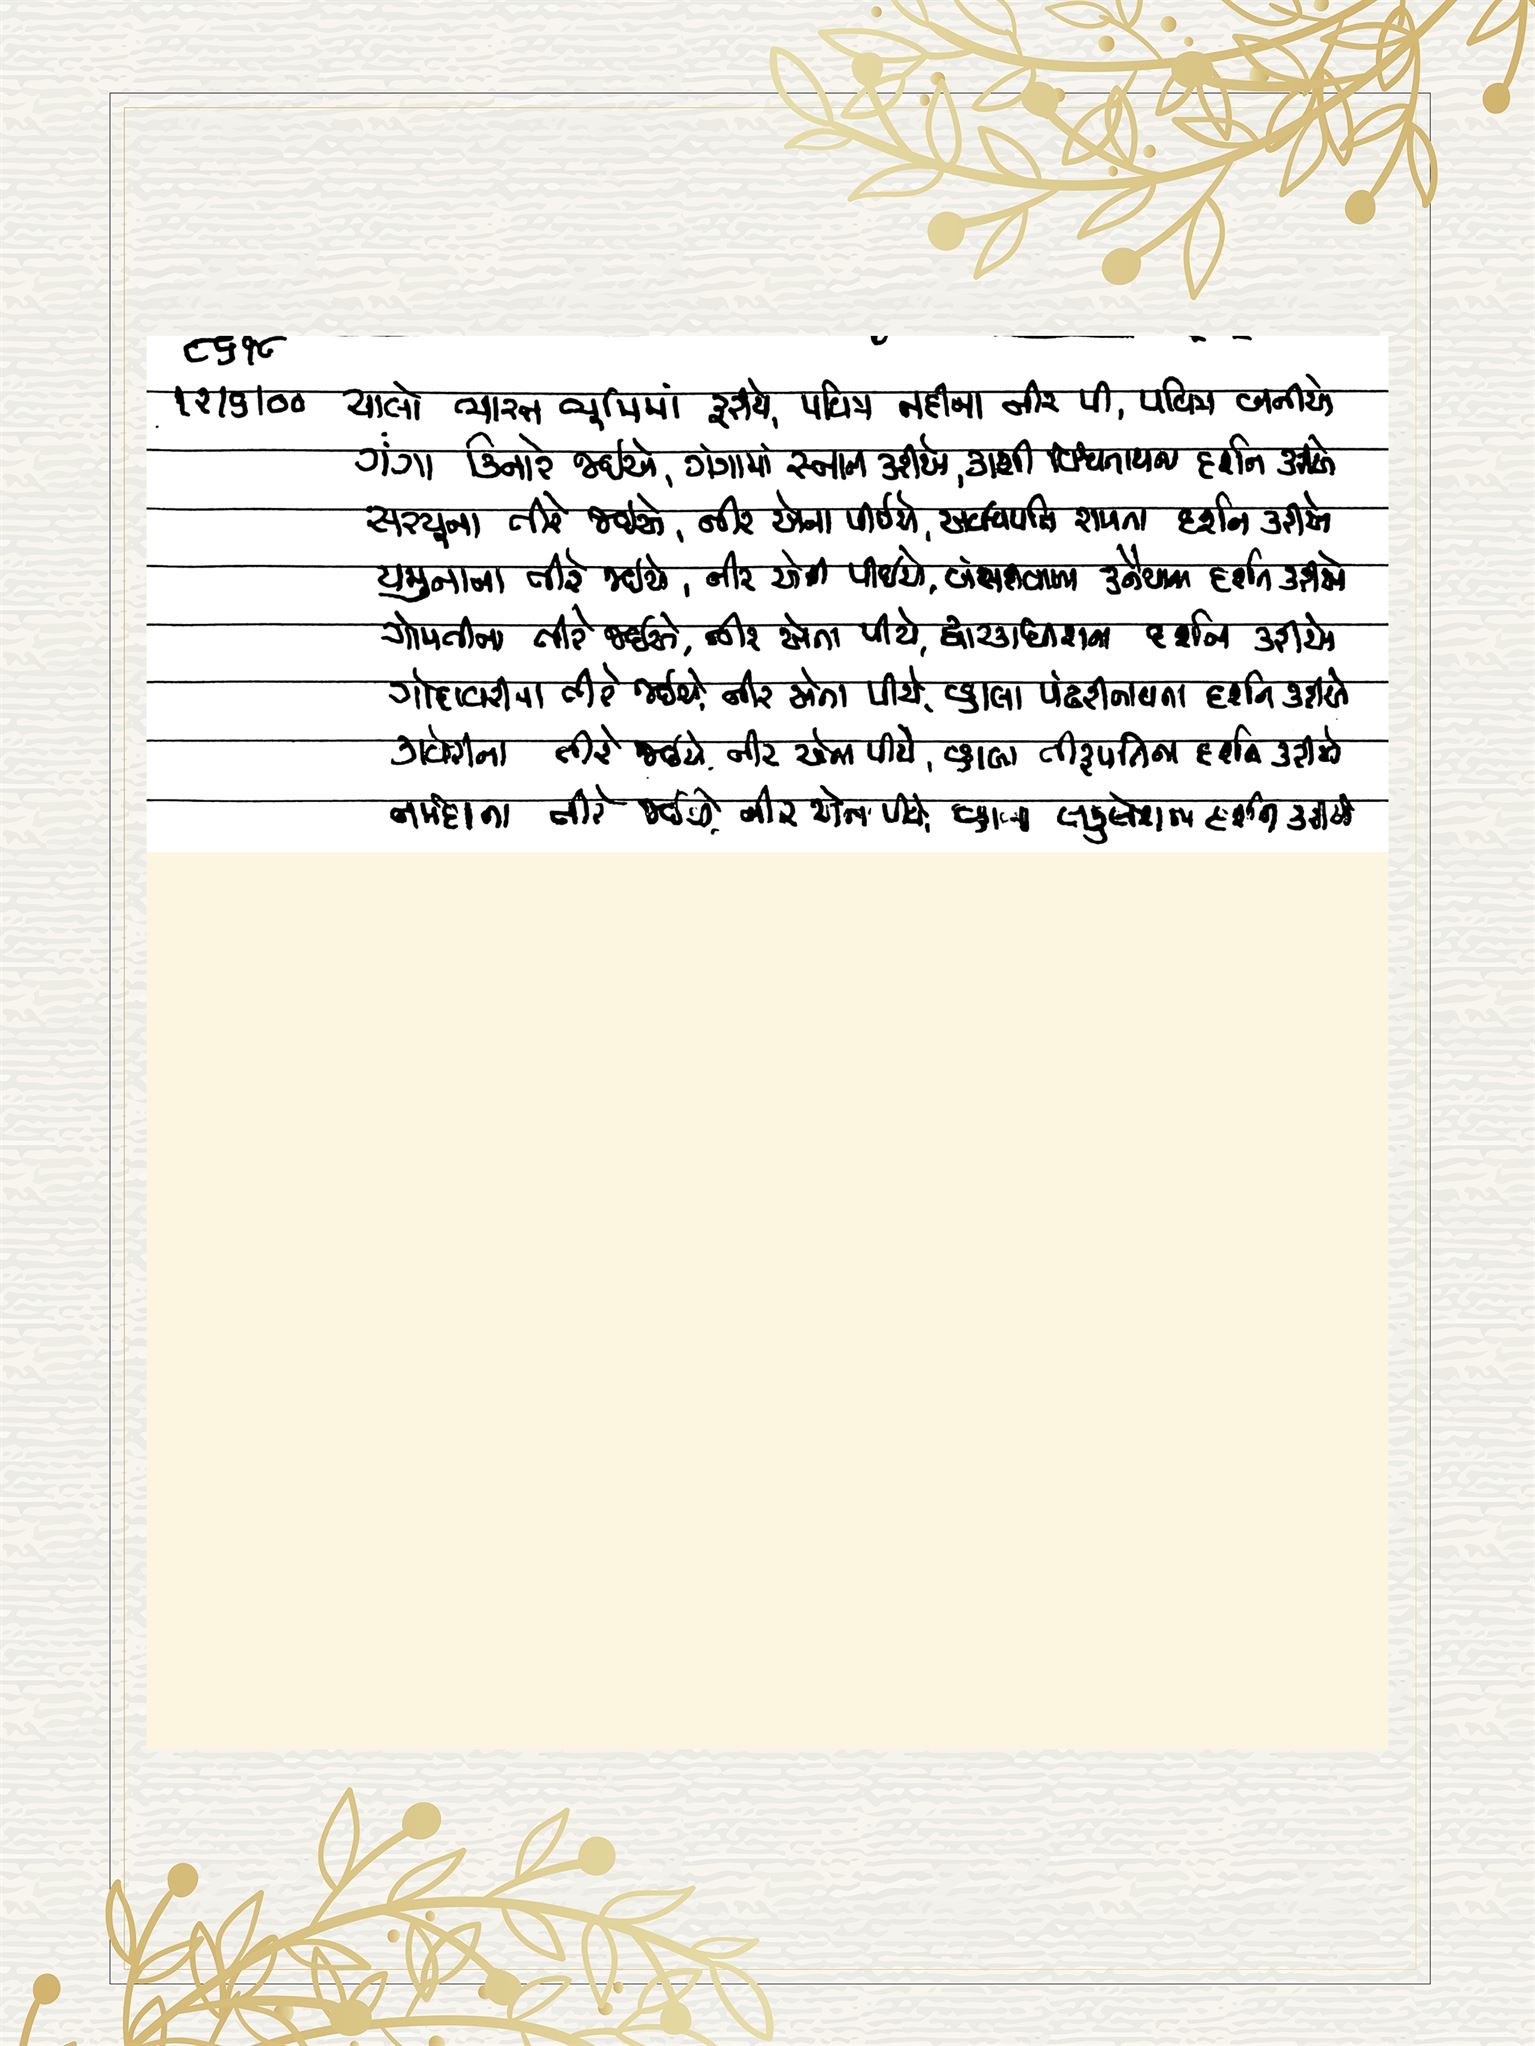 ૮૬૧૮
૧૨/૬/૦૦ ચાલો ભારત ભૂમિમાં ફરીયે, પવિત્ર નદીના નીર પી, પવિત્ર બનીએ
ગંગા કિનારે જઈએ, ગંગામાં સ્નાન કરીએ, કાશી વિશ્વનાથના દર્શન કરીએ
સરયૂના તીરે જઈએ, નીર એના પીઈએ, અવધપતિ રામના દર્શન કરીએ
યમુનાના તીરે જઈએ, નીર એના પીઈએ, બંસરીવાળા કનૈયાના દર્શન કરીએ
ગોમતીના તીરે જઈએ, નીર એના પીયે, દ્વારકાધીશના દર્શન કરીએ
ગોદાવરીના તીરે જઈએ, નીર એના પીયે, વ્હાલા પંઢરીનાથના દર્શન કરીએ
કાવેરીના તીરે જઈએ, નીર એના પીયે, વ્હાલા તીરૂપતિના દર્શન કરીએ
નર્મદાના તીરે જઈએ, નીર એના પીયે, વ્હાલા લકુલેશના દર્શન કરીએ